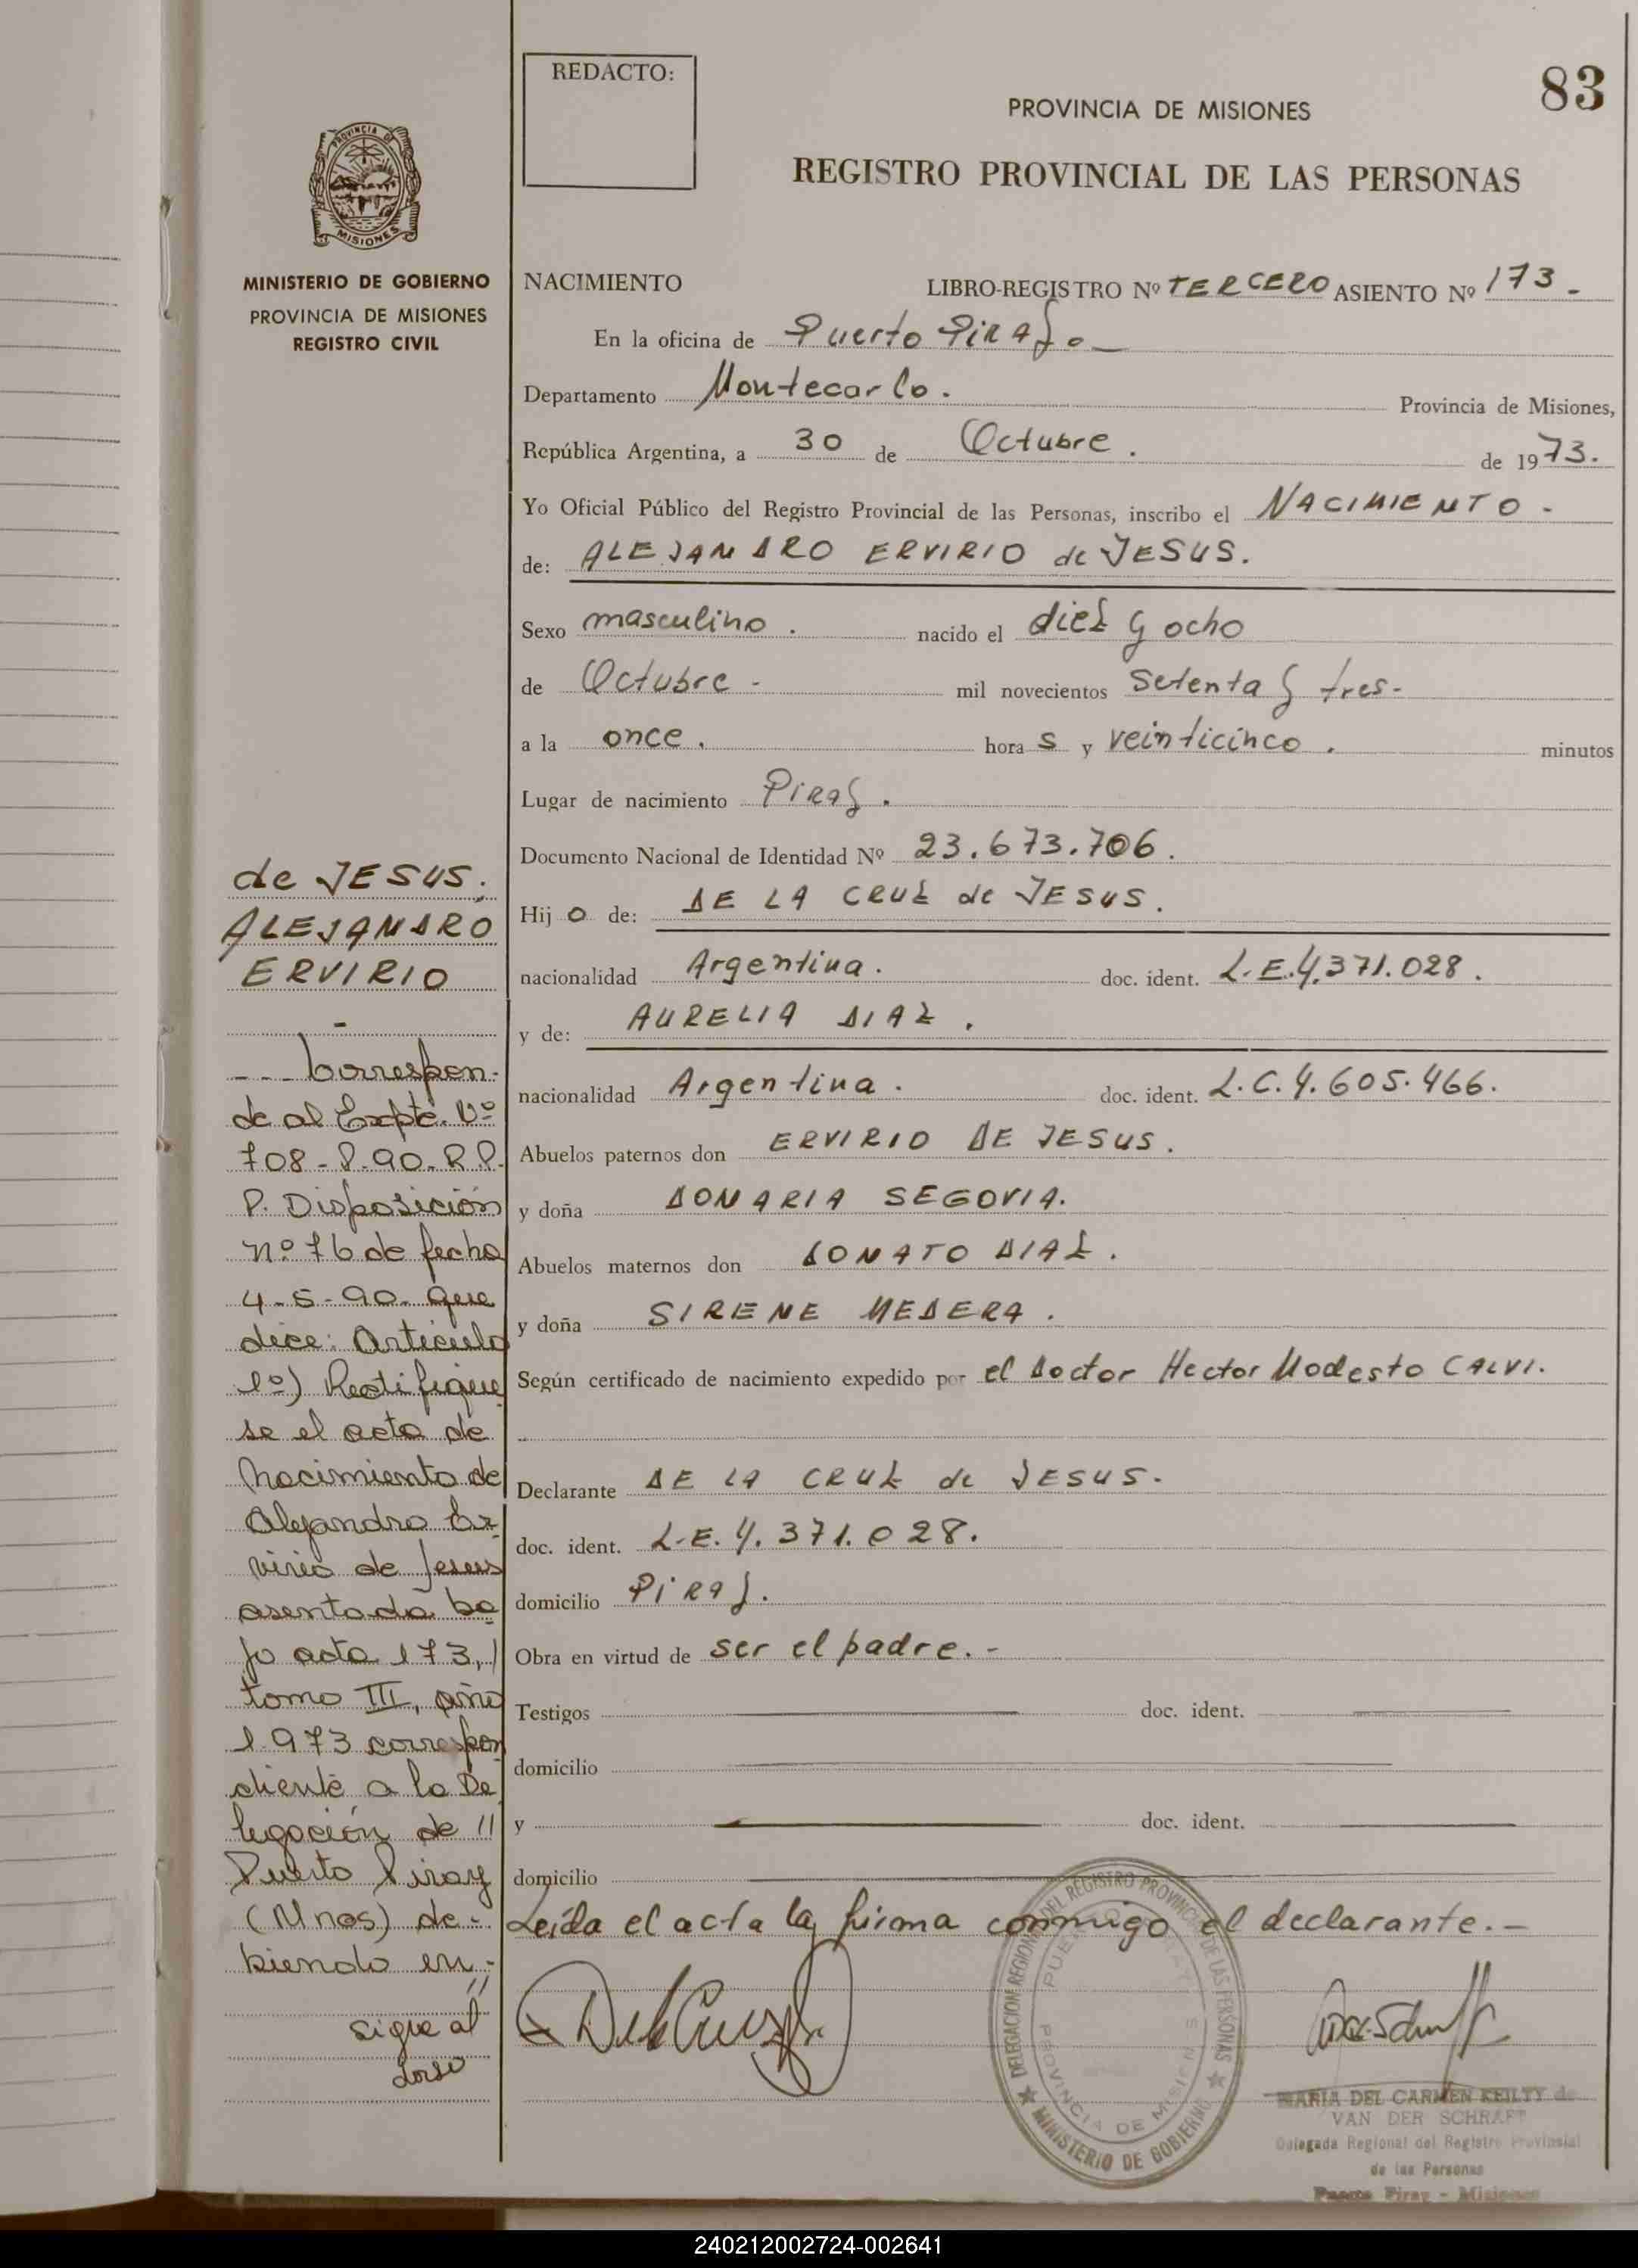 REDACTO:
83
PROVINCIA DE MISIONES
REGISTRO PROVINCIAL DE LAS PERSONAS
PROVINCIA DE
MISIONES
MINISTERIO DE GOBIERNO
PROVINCIA DE MISIONES
REGISTRO CIVIL
NACIMIENTO LIBRO-REGISTRO Nº TERCERO ASIENTO Nº 173 -
En la oficina de Puerto Piray.-
Departamento Montecarlo. Provincia de Misiones,
República Argentina, a 30 de Octubre. de 1973.
Yo Oficial Público del Registro Provincial de las Personas, inscribo el NACIMIENTO -
de: ALEJANDRO ERVIRIO de JESUS.
Sexo masculino. nacido el diez y ocho
de Octubre - mil novecientos setenta y tres-
a la once. hora s y veinticinco. minutos
Lugar de nacimiento Piray.
Documento Nacional de Identidad Nº 23.673.706.
Hij o de: DE LA CRUZ de JESUS.
nacionalidad Argentina. doc. ident. L.E.4.371.028.
y de: AURELIA DIAZ.
nacionalidad Argentina. doc. ident. L.C.4.605.466.
Abuelos paternos don ERVIRIO DE JESUS.
y doña DONARIA SEGOVIA.
Abuelos maternos don DONATO DIAZ.
y doña SIRENE MEDERA.
Según certificado de nacimiento expedido por el Doctor Hector Modesto CALVI.
Declarante DE LA CRUZ de JESUS.
doc. ident. L.E.4.371.028.
domicilio Piray.
Obra en virtud de ser el padre.-
Testigos doc. ident.
domicilio
y doc. ident.
domicilio
Leída el acta la firma conmigo el declarante.-
de JESUS.
ALEJANDRO
ERVIRIO
-
-- Correspon-
de al Expte. Nº
708-P-90-R.P.
P. Disposición
nº 76 de fecha
4-5-90- que
dice: Articulo
1º) Rectifique
se el acta de
Nacimiento de
Alejandro Er-
virio de Jesus
asentada ba
jo acta 173,
tomo III, año
1973 correspon
diente a la De
legación de //
Puerto Piray
(Mnes) de-
biendo en-//
sigue al
dorso
DELEGACION REGIONAL DEL REGISTRO PROVINCIAL DE LAS PERSONAS
MINISTERIO DE GOBIERNO
PUERTO PIRAY
PROVINCIA DE MISIONES
MARIA DEL CARMEN KEILTY de
VAN DER SCHRAFT
Delegada Regional del Registro Provincial
de las Personas
Puerto Piray - Misiones
240212002724-002641